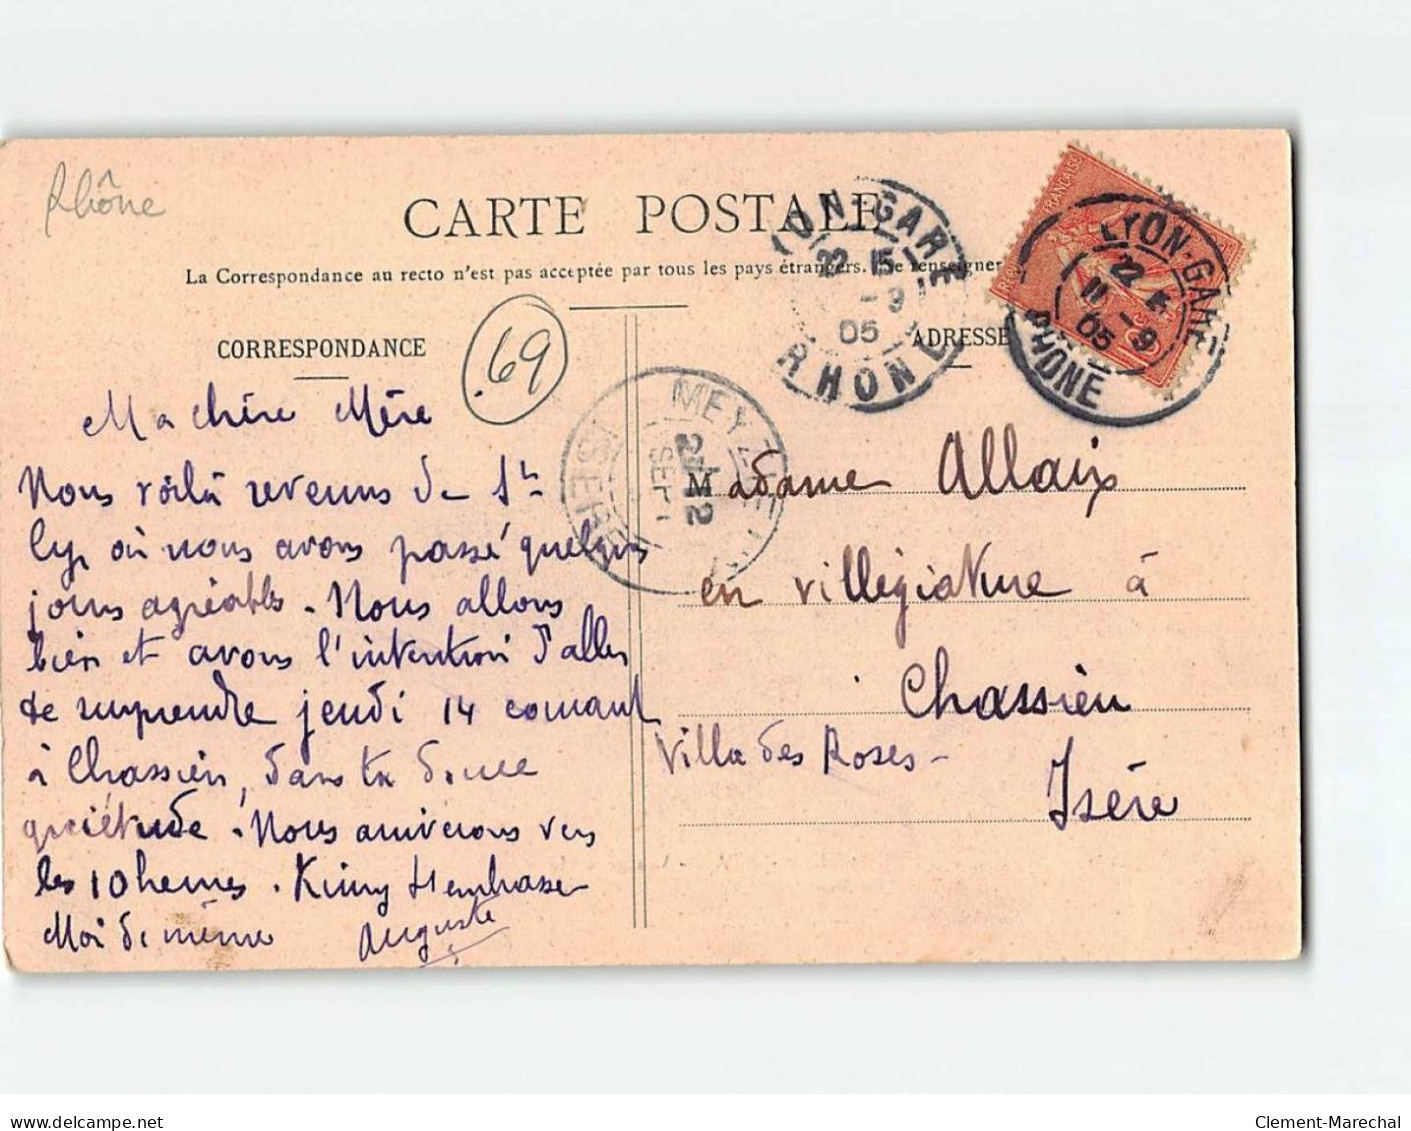 Rhône
CARTE POSTALE
La Correspondance au recto n'est pas acceptée par tous les pays étrangers. Se renseigner
CORRESPONDANCE
ADRESSE
69
LYON-GARE
22 15
11 -9
05
RHONE
LYON-GARE
22 15
-9
05
RHONE
MEYZIEU
12
SEPT
ISERE
Ma chère Mère
Nous voilà revenus de St
Cyr où nous avons passé quelques
jours agréables. Nous allons
bien et avons l'intention d'aller
te surprendre jeudi 14 courant
à Chassieu, dans ta douce
quiétude. Nous arriverons vers
les 10 heures. t'embrasse
Moi de même Auguste
Madame Allaix
en villégiature à
Chassieu
Villa des Roses-
Isère
delcampe.net
Clement-Marechal